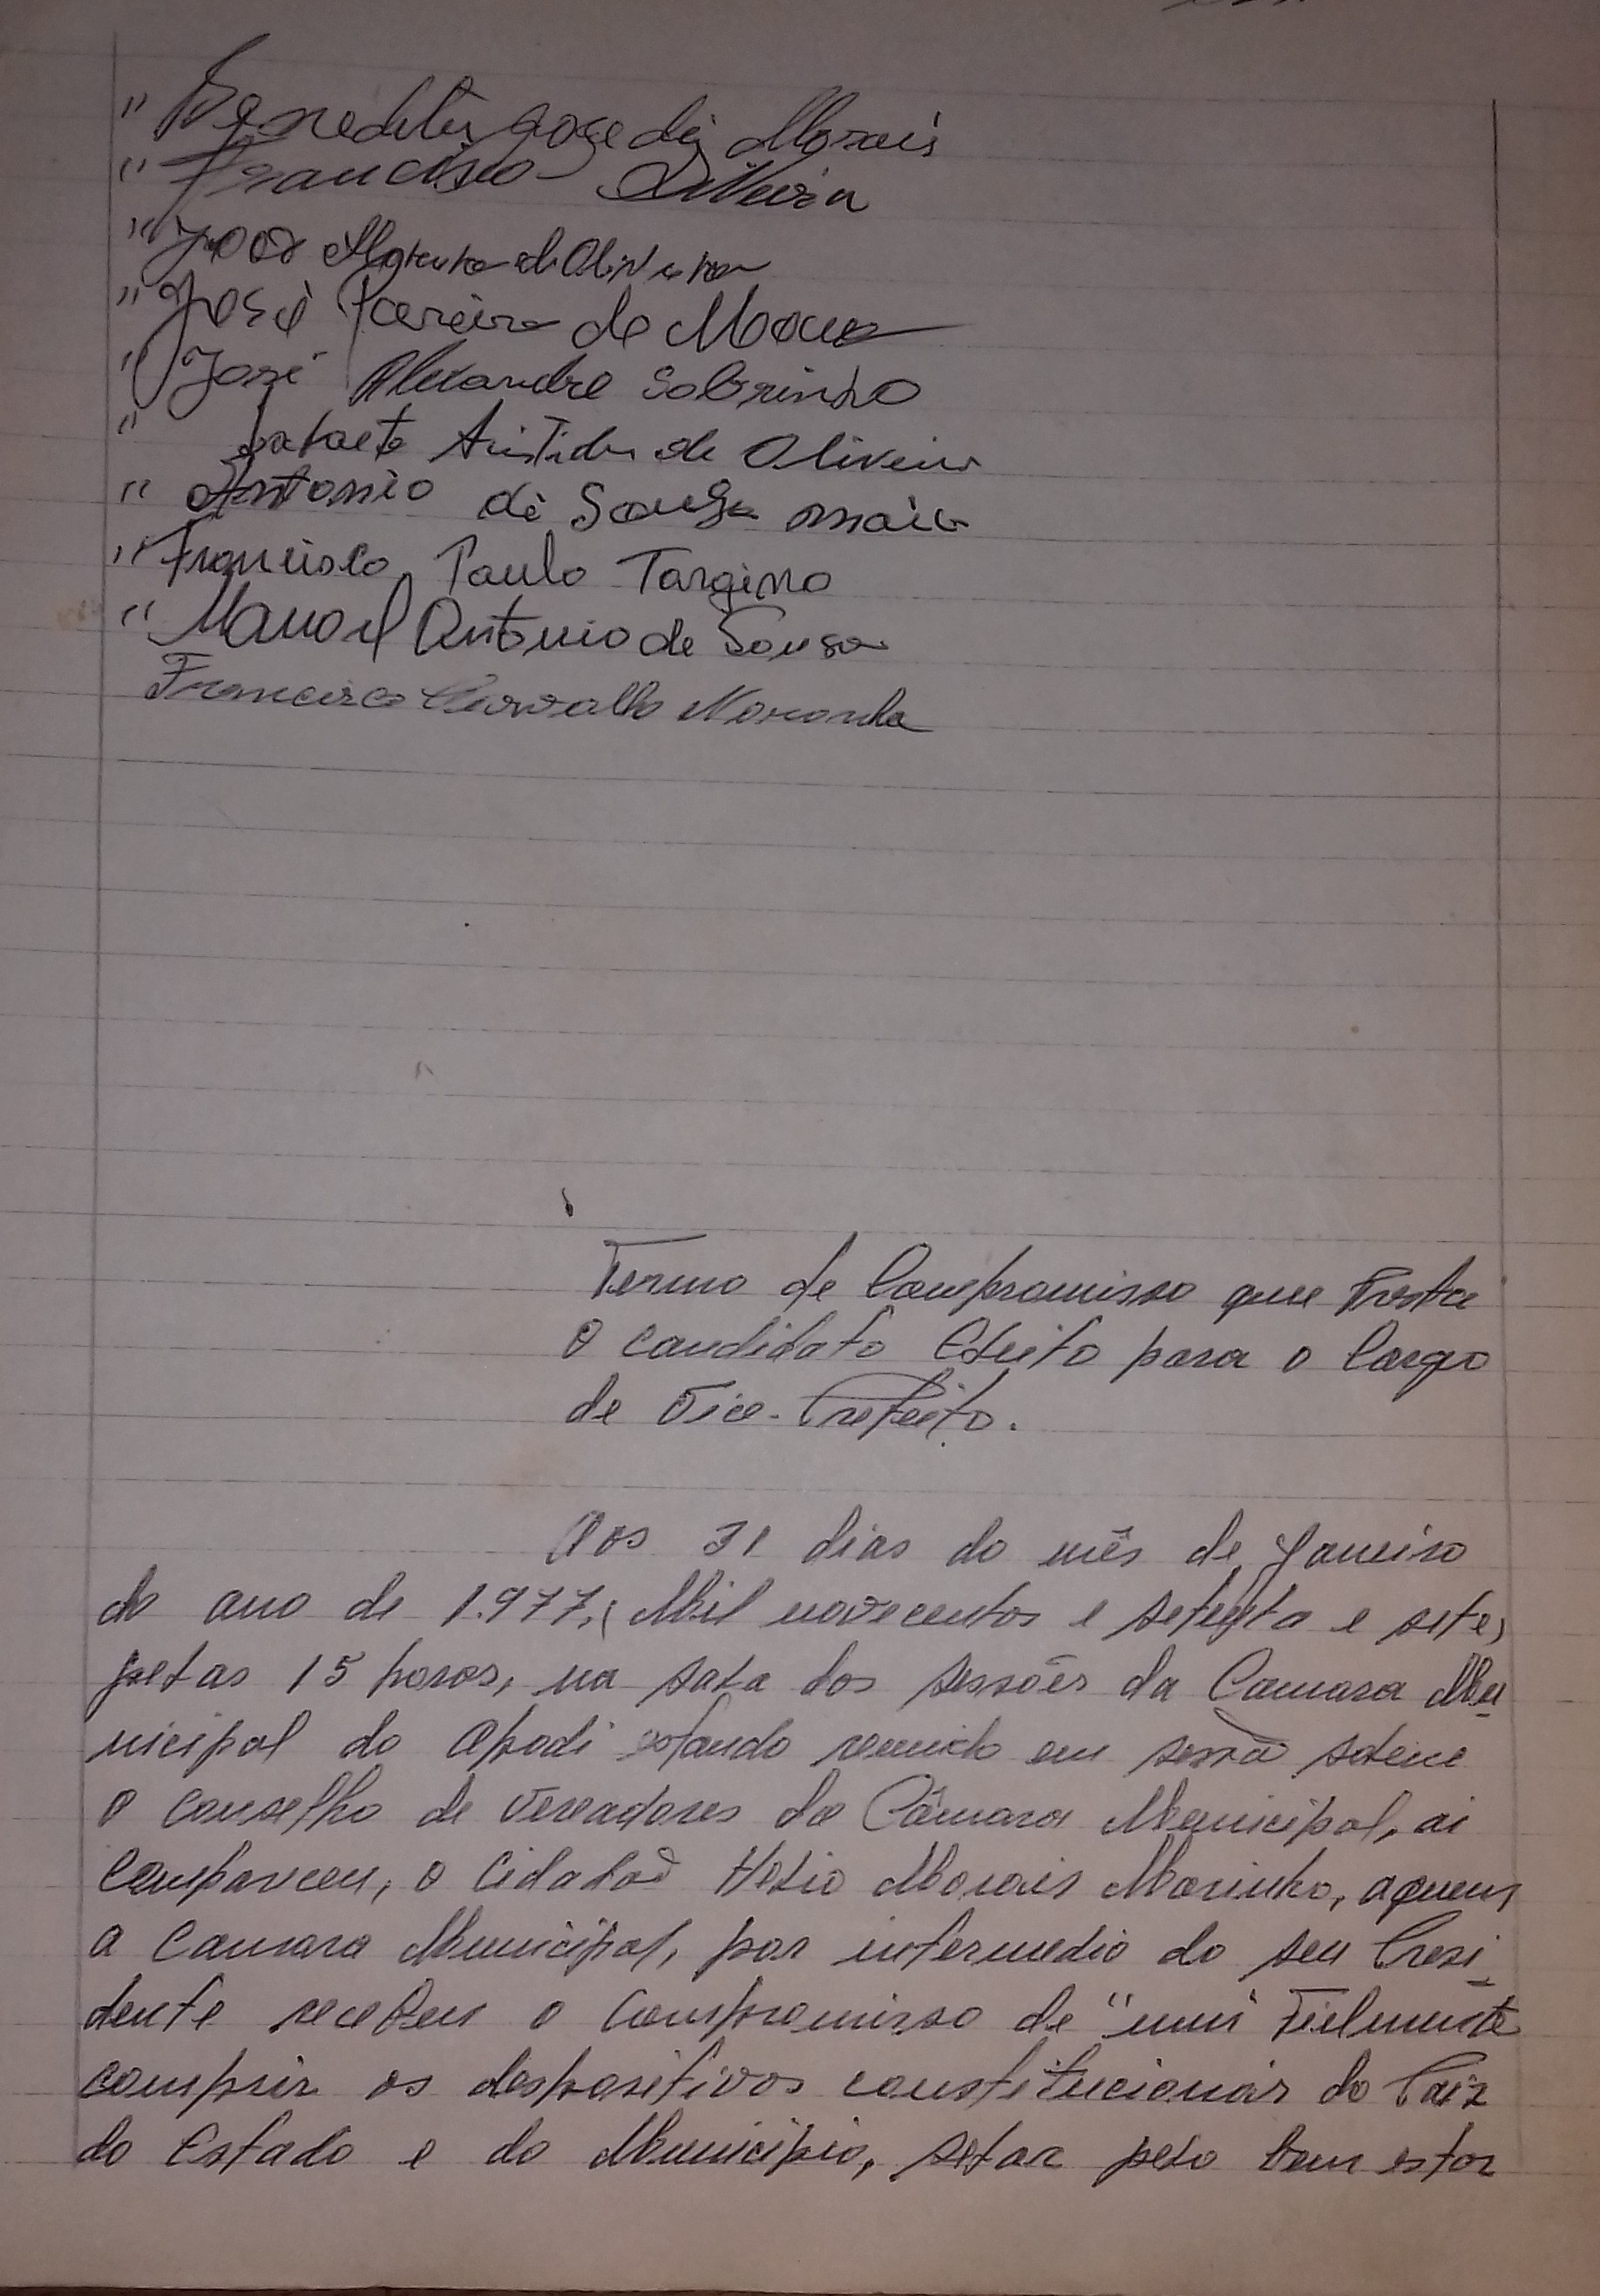 " Benedito Jose de Morais
" Francisco Oliveira
" de Oliveira
" José Pereira de
" José Alexandre Sobrinho
" Lafaete Aristides de Oliveira
" Antonio de Souza maia
" Francisco Paulo Targino
" Manoel Antonio de Sousa
Francisco Carvalho Noronha
Termo de Compromisso que Presta
O candidato Eleito para o Cargo
de Vice-Prefeito.
Aos 31 dias do mês de Janeiro
do ano de 1.977, (Mil novecentos e setenta e sete)
pelas 15 horas, na sala dos sessões da Camara Mu-
nicipal do Apodi estando reunido em sessão solene
o conselho de Vereadores da Câmara Municipal, ai
Compareceu, o Cidadaõ Helio Morais Marinho, aquem
a Camara Municipal, por intermedio do seu Presi-
dente recebeu o compromisso de "mui Fielmente
comprir os despositivos constitucionais do Paiz
do Estado e do Municipio, selar pelo bem estar